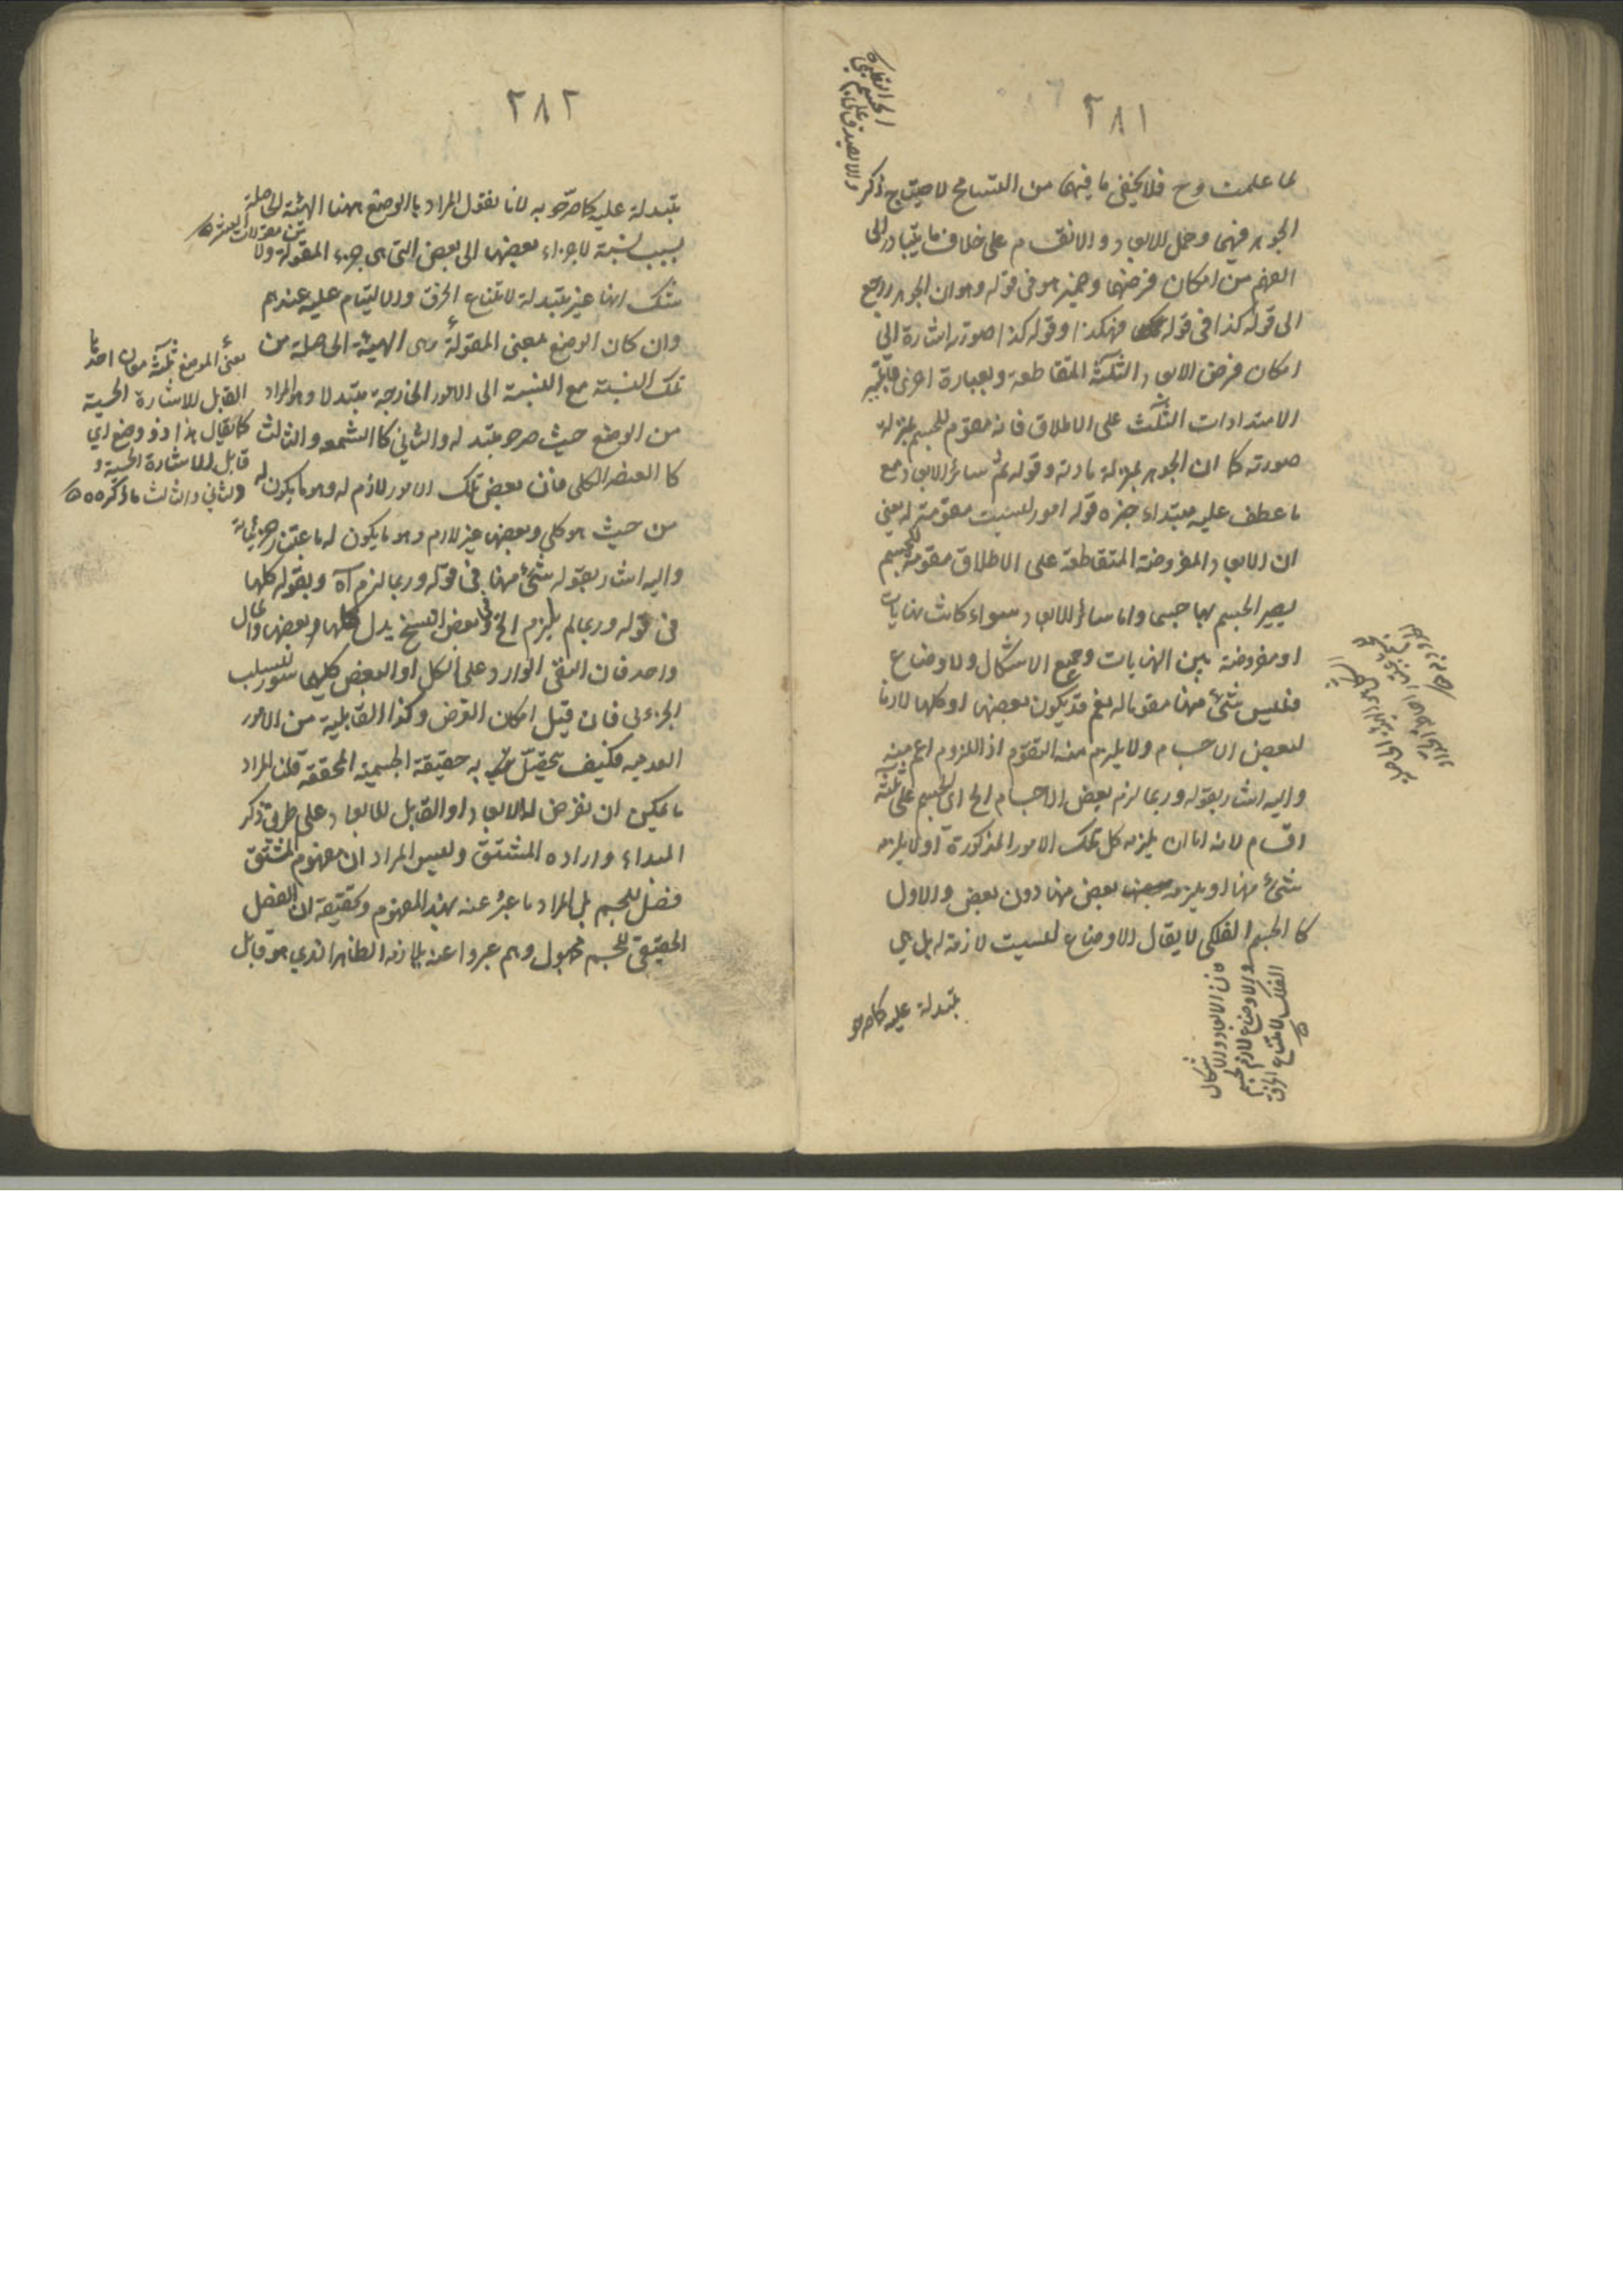 ٢٨١
لما علمت وح فلا يخفى ما فيهما من التسامح لاحتياج ذكر
الجوهر فيهما وحمل الابعاد والانقسام على خلاف ما يتبادر الى
الفهم من امكان فرضهما وضمير هو فى قوله وهو ان الجوهر راجع
الى قوله كذا فى قوله فهكذا وقوله كذا صورته اشارة الى
امكان فرض الابعاد الثلثة المتقاطعة وبعبارة اخرى قابلية
الامتدادات الثلث على الاطلاق فانه مقوم للجسم بمنزلة
صورته كما ان الجوهر بمنزلة مادته وقوله ثم سائر الابعاد مع
ما عطف عليه مبتداء خبره قوله امور ليست مقومة له يعنى
ان الابعاد المفروضة المتقاطعة على الاطلاق مقومة للجسم
يصير الجسم بها جسما واما سائر الابعاد سواء كانت نهايات
او مفروضة بين النهايات وجميع الاشكال والاوضاع
فليس شئ منها مقوما له نعم قد يكون بعضها او كلها لازما
لبعض الاجسام ولا يلزم منه التقوم اذ اللزوم اعم منه
واليه اشار بقوله وربما لزم بعض الاجسام الخ اى الجسم على ثلثة
اقسام لانه اما ان يلزمه كل تلك الامور المذكورة او لا يلزمه
شئ منها او يلزمه بعض منها دون بعض والاول
كا الجسم الفلكى لا يقال الاوضاع ليست لازمة له بل هى
فان الابعاد والاشكال
والاوضاع لازم لجسم
الفلك لامتناع الخرق
متبدلة عليه كما صرحو
٢٨٢
متبدلة عليه كما صرحو به لانا نقول المراد با الوضع ههنا الهيئة الحاصلة
بسبب نسبة الاجزاء بعضها الى بعض التى هى جزء المقولة ولا
من مقولات العشرة
شك انها غير متبدلة لامتناع الخرق والالتيام عليه عندهم
وان كان الوضع بمعنى المقولة وهى الهيئة الحاصلة من
تلك النسبة مع النسبة الى الامور الخارجة متبدلا وهو المراد
من الوضع حيث صرحو بتبدله والثانى كا الشمعه والثالث
كا العنصر الكلى فان بعض تلك الامور لازم له وهو ما يكون له
من حيث هو كلى وبعضها غير لازم وهو ما يكون له باعتبار جزئياته
واليه اشار بقوله شئ منها فى قوله وربما لزم آه وبقوله كلها
فى قوله وربما لم يلزم الخ وفى بعض النسخ بدل كلها وبعضها والمآل
واحد فان النفى الوارد على الكل او البعض كليهما سور لسلب
الجزئى فان قيل امكان الفرض وكذا القابلية من الامور
العدميه فكيف يتحصل به حقيقة الجسمية المحققة قلنا المراد
ما يمكن ان نفرض له الابعاد او القابل للابعاد على طريق ذكر
المبداء واراده المشتق وليس المراد ان مفهوم المشتق
فصل للجسم بل المراد ما عبر عنه بهذا المفهوم وتحقيقه ان الفصل
الحقيقى للجسم مجهول وهم عبروا عنه بلازمه الظاهر الذي هو قابل
معنى الوضع ثلثة معان احدها
القابل للاشارة الحسية
كما يقال هذا ذو وضع اي
قابل للاشارة الحسية و
الثاني والثالث ما ذكر